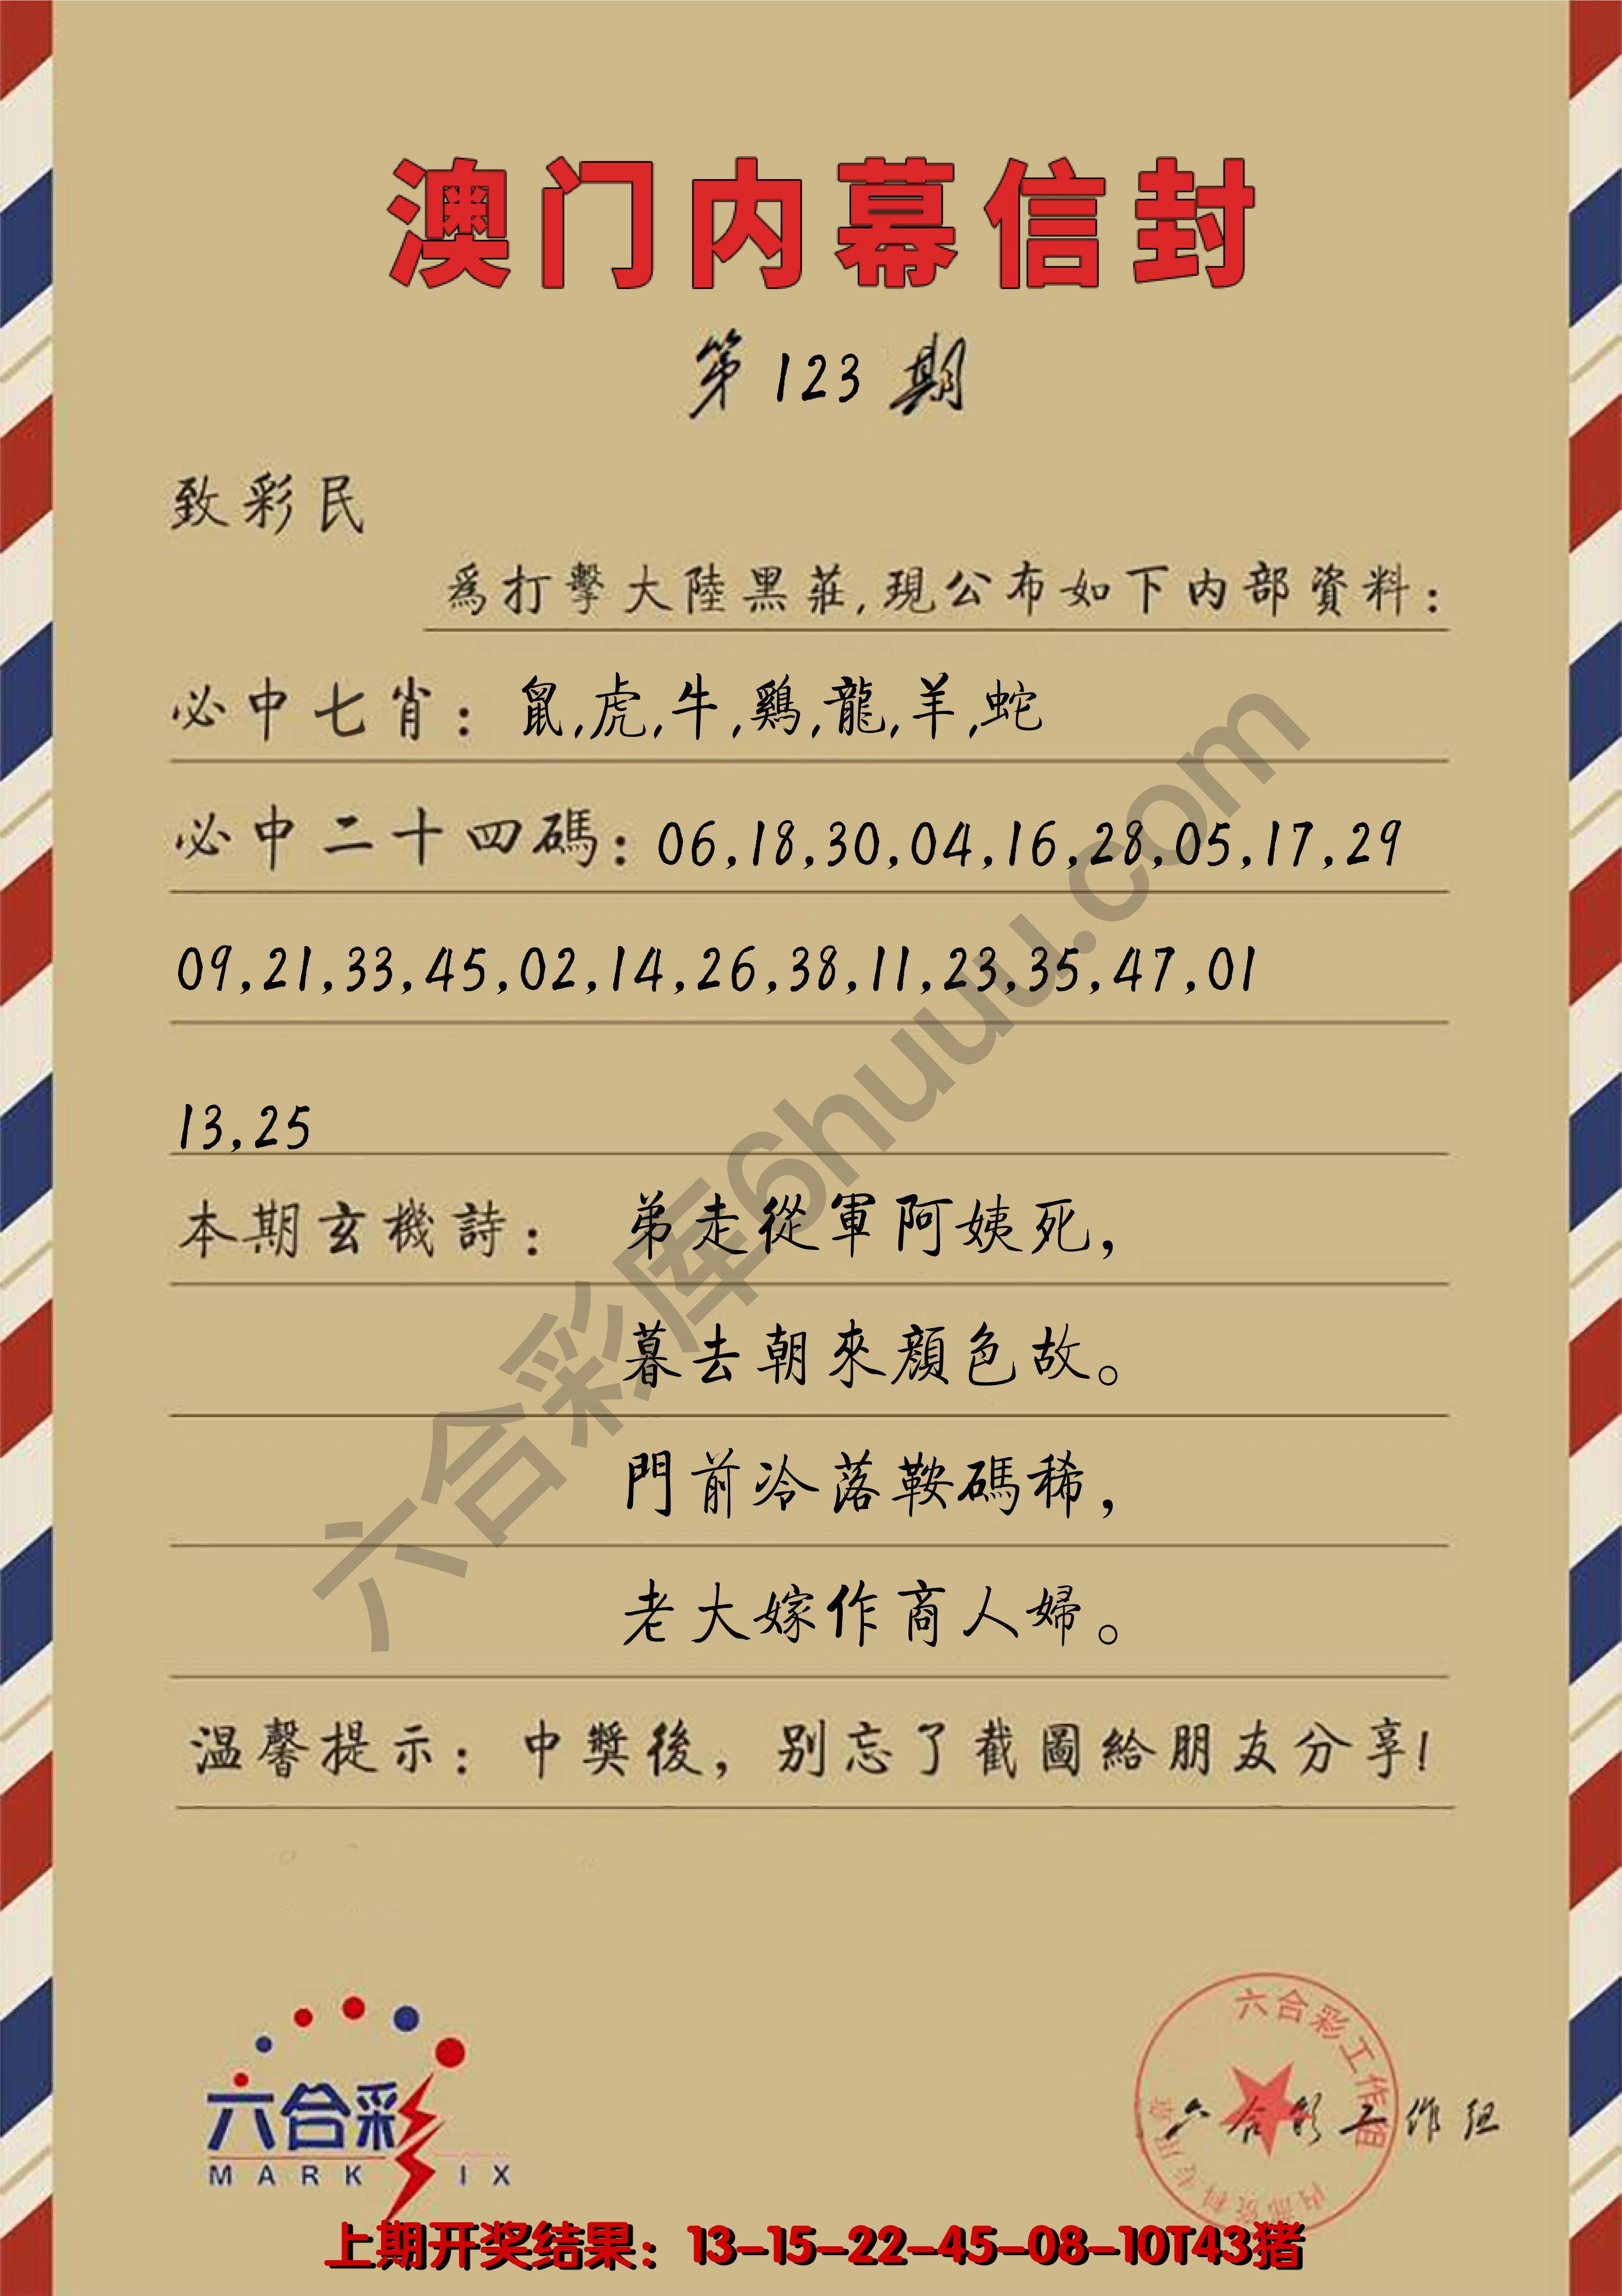 澳门内幕信封
第 123 期
致彩民
爲打擊大陸黑莊,現公布如下内部資料:
必中七肖: 鼠,虎,牛,鷄,龍,羊,蛇
必中二十四碼: 06,18,30,04,16,28,05,17,29
09,21,33,45,02,14,26,38,11,23,35,47,01
13,25
本期玄機詩: 弟走從軍阿姨死,
暮去朝來顔色故。
門前冷落鞍碼稀,
老大嫁作商人婦。
温馨提示: 中獎後, 别忘了截圖給朋友分享!
六合彩库6huuu.com
六合彩
MARK IX
六合彩工作组
内部资料专用章
六合彩工作组
上期开奖结果: 13-15-22-45-08-10T43猪